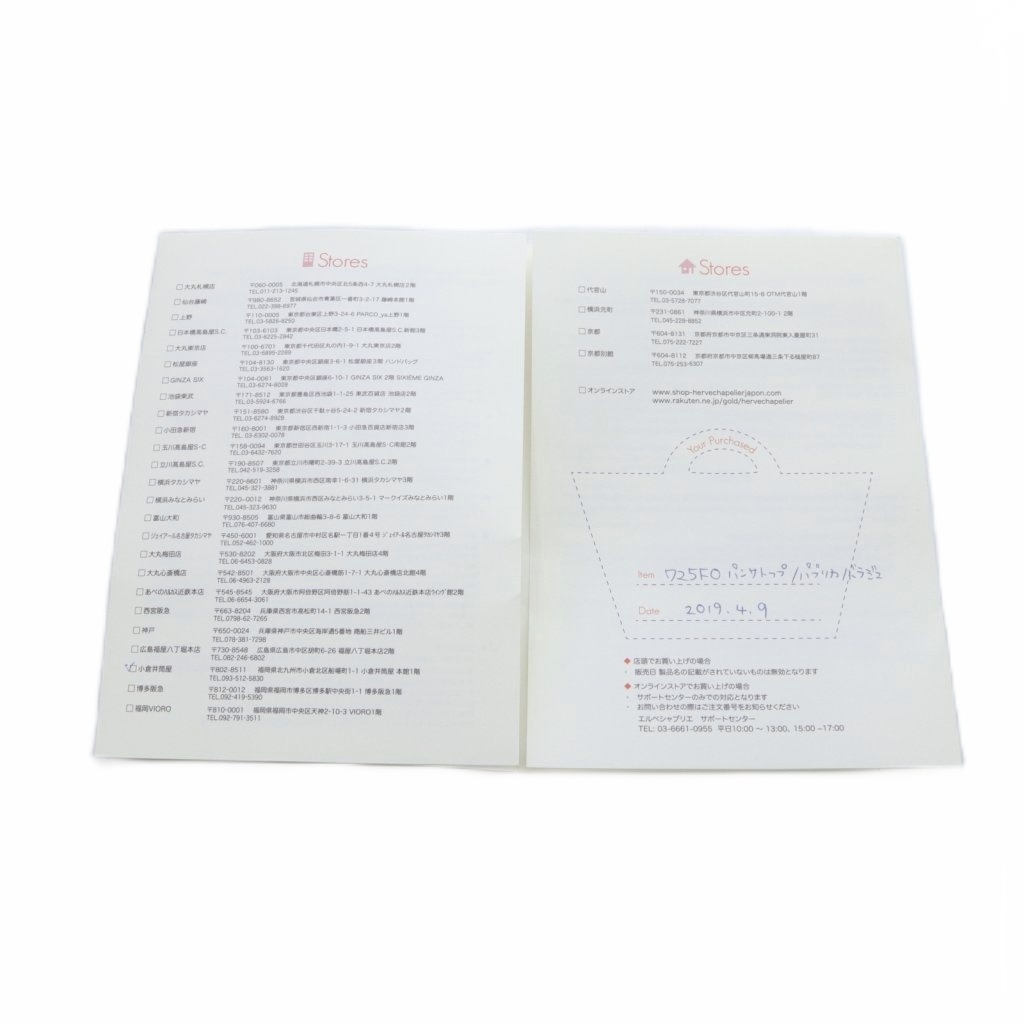 Stores
□大丸札幌店 〒060-0005 北海道札幌市中央区北5条西4-7 大丸札幌店2階
TEL.011-213-1245
□仙台藤崎 〒980-8652 宮城県仙台市青葉区一番町3-2-17 藤崎本館1階
TEL.022-398-8977
□上野 〒110-0005 東京都台東区上野3-24-6 PARCO_ya上野1階
TEL.03-5826-8250
□日本橋高島屋S.C. 〒103-6103 東京都中央区日本橋2-5-1 日本橋高島屋S.C.新館3階
TEL.03-6225-2842
□大丸東京店 〒100-6701 東京都千代田区丸の内1-9-1 大丸東京店2階
TEL.03-6895-2289
□松屋銀座 〒104-8130 東京都中央区銀座3-6-1 松屋銀座3階 ハンドバッグ
TEL.03-3563-1620
□GINZA SIX 〒104-0061 東京都中央区銀座6-10-1 GINZA SIX 2階 SIXIEME GINZA
TEL.03-6274-8028
□池袋東武 〒171-8512 東京都豊島区西池袋1-1-25 東武百貨店 池袋店2階
TEL.03-5924-6766
□新宿タカシマヤ 〒151-8580 東京都渋谷区千駄ヶ谷5-24-2 新宿タカシマヤ2階
TEL.03-6274-8928
□小田急新宿 〒160-8001 東京都新宿区西新宿1-1-3 小田急百貨店新宿店3階
TEL.03-6302-0078
□玉川高島屋S・C 〒158-0094 東京都世田谷区玉川3-17-1 玉川高島屋S・C南館2階
TEL.03-6432-7620
□立川高島屋S.C. 〒190-8507 東京都立川市曙町2-39-3 立川高島屋S.C.2階
TEL.042-519-3258
□横浜タカシマヤ 〒220-8601 神奈川県横浜市西区南幸1-6-31 横浜タカシマヤ3階
TEL.045-321-3881
□横浜みなとみらい 〒220-0012 神奈川県横浜市西区みなとみらい3-5-1 マークイズみなとみらい1階
TEL.045-323-9630
□富山大和 〒930-8505 富山県富山市総曲輪3-8-6 富山大和1階
TEL.076-407-6680
□ジェイアール名古屋タカシマヤ 〒450-6001 愛知県名古屋市中村区名駅一丁目1番4号 ジェイアール名古屋タカシマヤ3階
TEL.052-462-1000
□大丸梅田店 〒530-8202 大阪府大阪市北区梅田3-1-1 大丸梅田店4階
TEL.06-6453-0828
□大丸心斎橋店 〒542-8501 大阪府大阪市中央区心斎橋筋1-7-1 大丸心斎橋店北館4階
TEL.06-4963-2128
□あべのハルカス近鉄本店 〒545-8545 大阪府大阪市阿倍野区阿倍野筋1-1-43 あべのハルカス近鉄本店ウイング館2階
TEL.06-6654-3061
□西宮阪急 〒663-8204 兵庫県西宮市高松町14-1 西宮阪急2階
TEL.0798-62-7265
□神戸 〒650-0024 兵庫県神戸市中央区海岸通5番地 商船三井ビル1階
TEL.078-381-7298
□広島福屋八丁堀本店 〒730-8548 広島県広島市中区胡町6-26 福屋八丁堀本店2階
TEL.082-246-6802
□小倉井筒屋 〒802-8511 福岡県北九州市小倉北区船場町1-1 小倉井筒屋 本館1階
TEL.093-512-5830
□博多阪急 〒812-0012 福岡県福岡市博多区博多駅中央街1-1 博多阪急1階
TEL.092-419-5390
□福岡VIORO 〒810-0001 福岡県福岡市中央区天神2-10-3 VIORO1階
TEL.092-791-3511
Stores
□代官山 〒150-0034 東京都渋谷区代官山町15-6 OTM代官山1階
TEL.03-5728-7077
□横浜元町 〒231-0861 神奈川県横浜市中区元町2-100-1 2階
TEL.045-228-8852
□京都 〒604-8131 京都府京都市中京区三条通東洞院東入菱屋町31
TEL.075-222-7227
□京都別館 〒604-8112 京都府京都市中京区柳馬場通三条下る槌屋町87
TEL.075-253-6307
□オンラインストア www.shop-hervechapelierjapon.com
www.rakuten.ne.jp/gold/hervechapelier
Your Purchased
Item 725FO パンサトップ/パプリカ/ドラジェ
Date 2019.4.9
◆店頭でお買い上げの場合
・ 販売日 製品名の記載がされていないものは無効となります
◆オンラインストアでお買い上げの場合
・ サポートセンターのみでの対応となります
・ お問い合わせの際はご注文番号をお知らせください
エルベシャプリエ サポートセンター
TEL: 03-6661-0955 平日10:00～13:00, 15:00~17:00